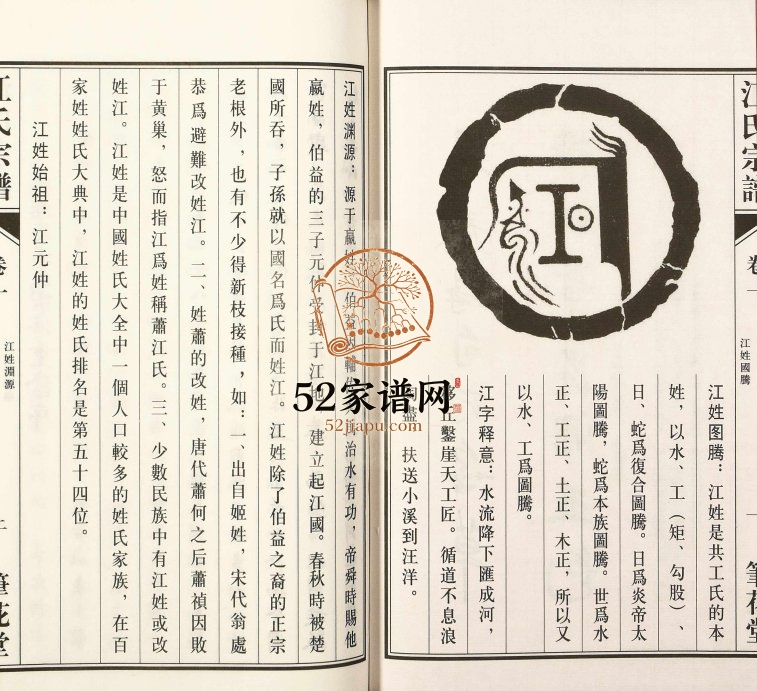 江氏宗譜
卷一
江姓國騰
一
筆花堂
江姓图騰：江姓是共工氏的本
姓，以水、工（矩、勾股）、
日、蛇爲復合圖騰。日爲炎帝太
陽圖騰，蛇爲本族圖騰。世爲水
正、工正、土正、木正，所以又
以水、工爲圖騰。
江字释意：水流降下匯成河，
移丘鑿崖天工匠。循道不息浪
淘盡，
扶送小溪到汪洋。
江姓渊源：源于嬴姓，伯益 輔 治水有功，帝舜時賜他
嬴姓，伯益的三子元仲受封于江地，建立起江國。春秋時被楚
國所吞，子孫就以國名爲氏而姓江。江姓除了伯益之裔的正宗
老根外，也有不少得新枝接種，如：一、出自姬姓，宋代翁處
恭爲避難改姓江。二、姓蕭的改姓，唐代蕭何之后蕭禎因敗
于黄巢，怒而指江爲姓稱蕭江氏。三、少數民族中有江姓或改
姓江。江姓是中國姓氏大全中一個人口較多的姓氏家族，在百
家姓姓氏大典中，江姓的姓氏排名是第五十四位。
江姓始祖：江元仲
江氏宗譜
卷一
江姓淵源
筆花堂
52家谱网
52jiapu.com